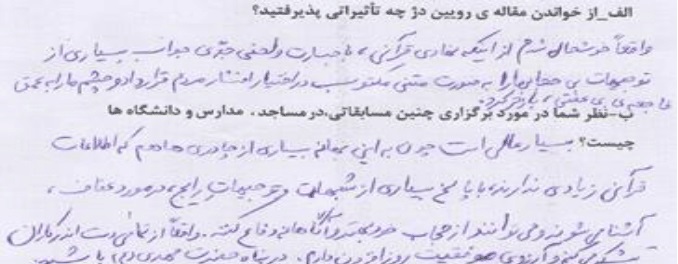 الف_از خواندن مقاله ی رویین دژ چه تأثیراتی پذیرفتید؟
واقعاً خوشحال شدم از اینکه مفادی قرآنی، با جسارت و لحنی جدی جوانب بسیاری از
توجیهات بی حجابی را به صورت متنی مکتوب در اختیار اقشار مردم قرار داد و چشم ما را به عمق
فاجعه ی بی عفتی، باز کرد.
ب-نظر شما در مورد برگزاری چنین مسابقاتی،در مساجد، مدارس و دانشگاه ها
چیست؟ بسیار عالی است چون به این بهانه بسیاری از چادری ها هم که اطلاعات
قرآنی زیادی ندارند، با پاسخ بسیاری از شبهات و توجیهات رایج، در مورد عفاف،
آشنا می شوند و می توانند از حجاب خود بهتر و آگاهانه دفاع کنند. واقعاً از تمامی دست اندرکاران
تشکر می کنم و آرزوی موفقیت روز افزون دارم. در پناه حضرت مهدی باشید.